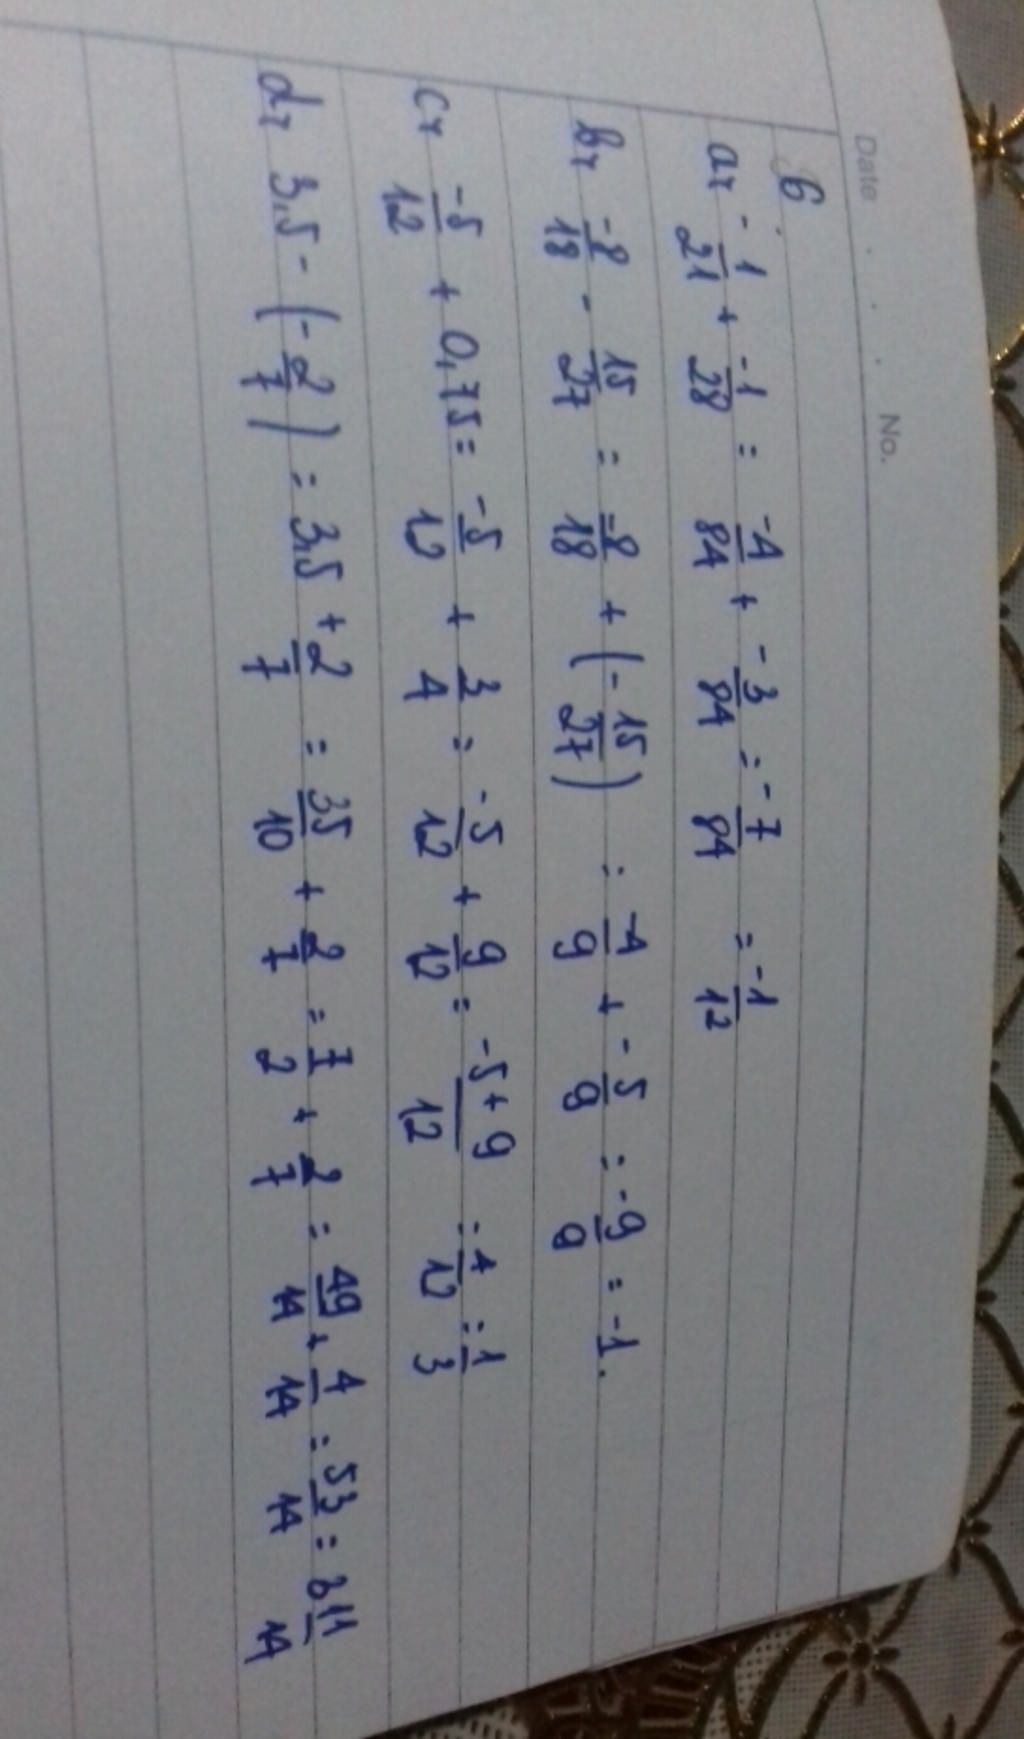 Date No.
6
a, -1/21 + -1/28 = -4/84 + -3/84 = -7/84 = -1/12
b, -8/18 - 15/27 = -8/18 + (-15/27) = -4/9 + -5/9 = -9/9 = -1.
c, -5/12 + 0,75 = -5/12 + 3/4 = -5/12 + 9/12 = -5+9/12 = 4/12 = 1/3
d, 3,5 - (-2/7) = 3,5 + 2/7 = 35/10 + 2/7 = 7/2 + 2/7 = 49/14 + 4/14 = 53/14 = 3 11/14